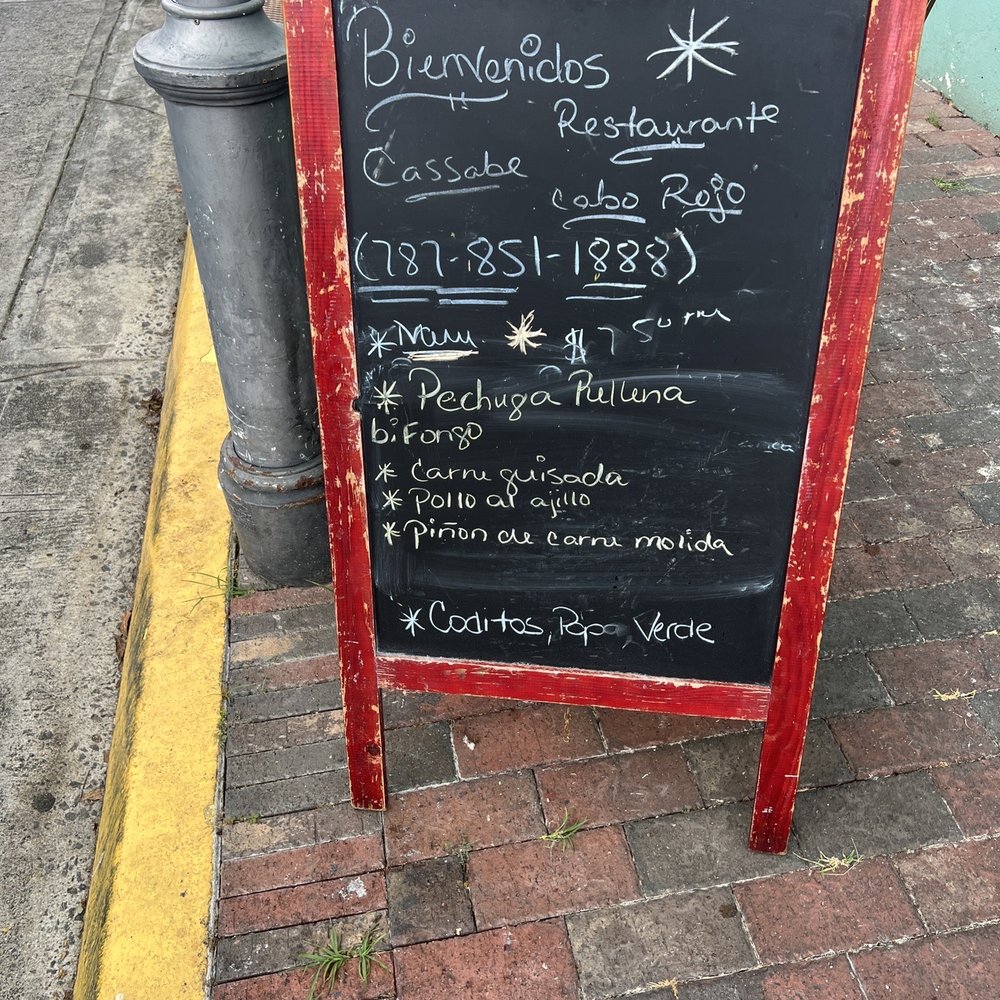 Bienvenidos
Restaurante
Cassabe
cabo Rojo
(787-851-1888)
* Menu * $ 7.50
* Pechuga Rellena
bifongo
* Carne guisada
* Pollo al ajillo
* Piñon de carne molida
* Coditos, Papa, Verde